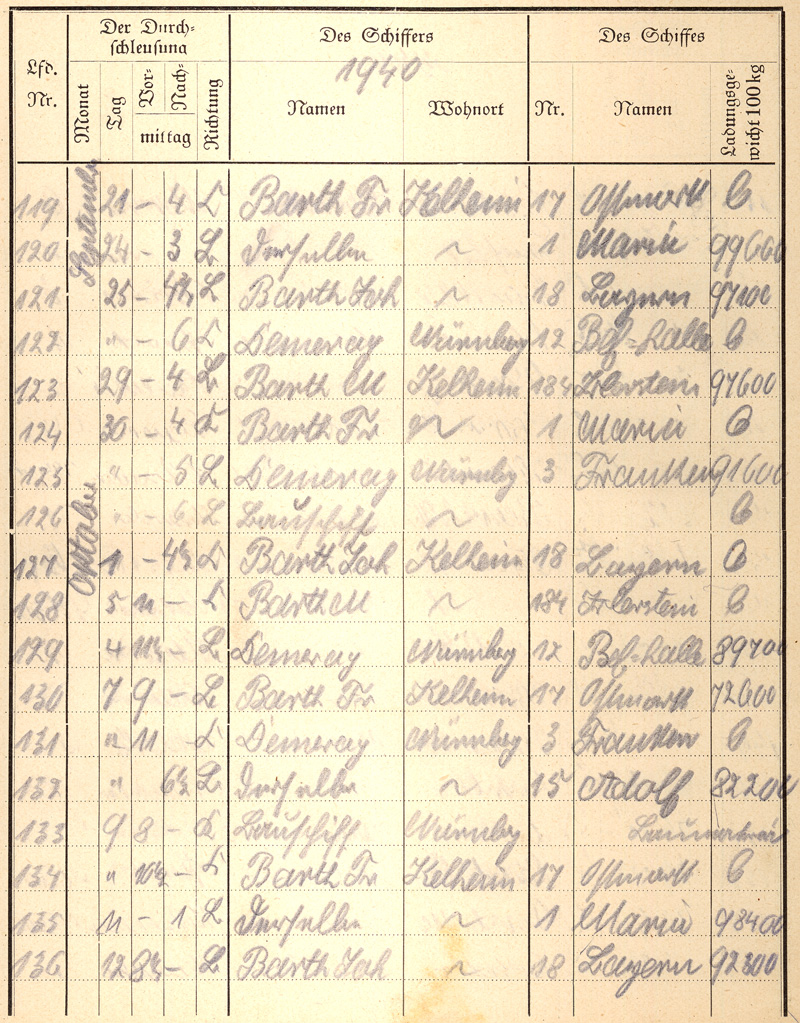 Der Durch-
schleusung
Des Schiffers
Des Schiffes
1940
Lfd.
Nr.
Monat
Tag
Vor-
Nach-
mittag
Richtung
Namen
Wohnort
Nr.
Namen
Ladungsge-
wicht 100 kg
September
119 21 - 4 Barth Fr Kelheim 17 Ostmark
120 24 - 3 Derselbe 1 Maria 99600
121 25 - 4½ Barth Joh 18 Bayern 97100
122 " - 6 Demeray Nürnberg 12 Bef=halle
123 29 - 4 Barth M Kelheim 184 97600
124 30 - 4 Barth Fr 1 Maria
125 " - 5 Demeray Nürnbg 3 Franken 91600
126 " - 6 Bauschiff
Oktober
127 1 - 4½ Barth Joh Kelheim 18 Bayern
128 5 11 - Barth M 184
129 4 11½ - Demeray Nürnberg 12 Bef=halle 89700
130 7 9 - Barth Fr Kelheim 17 Ostmark 72600
131 " 11 - Demeray Nürnberg 3 Franken
132 " 6½ Derselbe 15 Adolf 82200
133 9 8 - Bauschiff Nürnberg
134 " 10½ - Barth Fr Kelheim 17 Ostmark
135 11 - 1 Derselbe 1 Maria 98400
136 12 8½ - Barth Joh 18 Bayern 92300